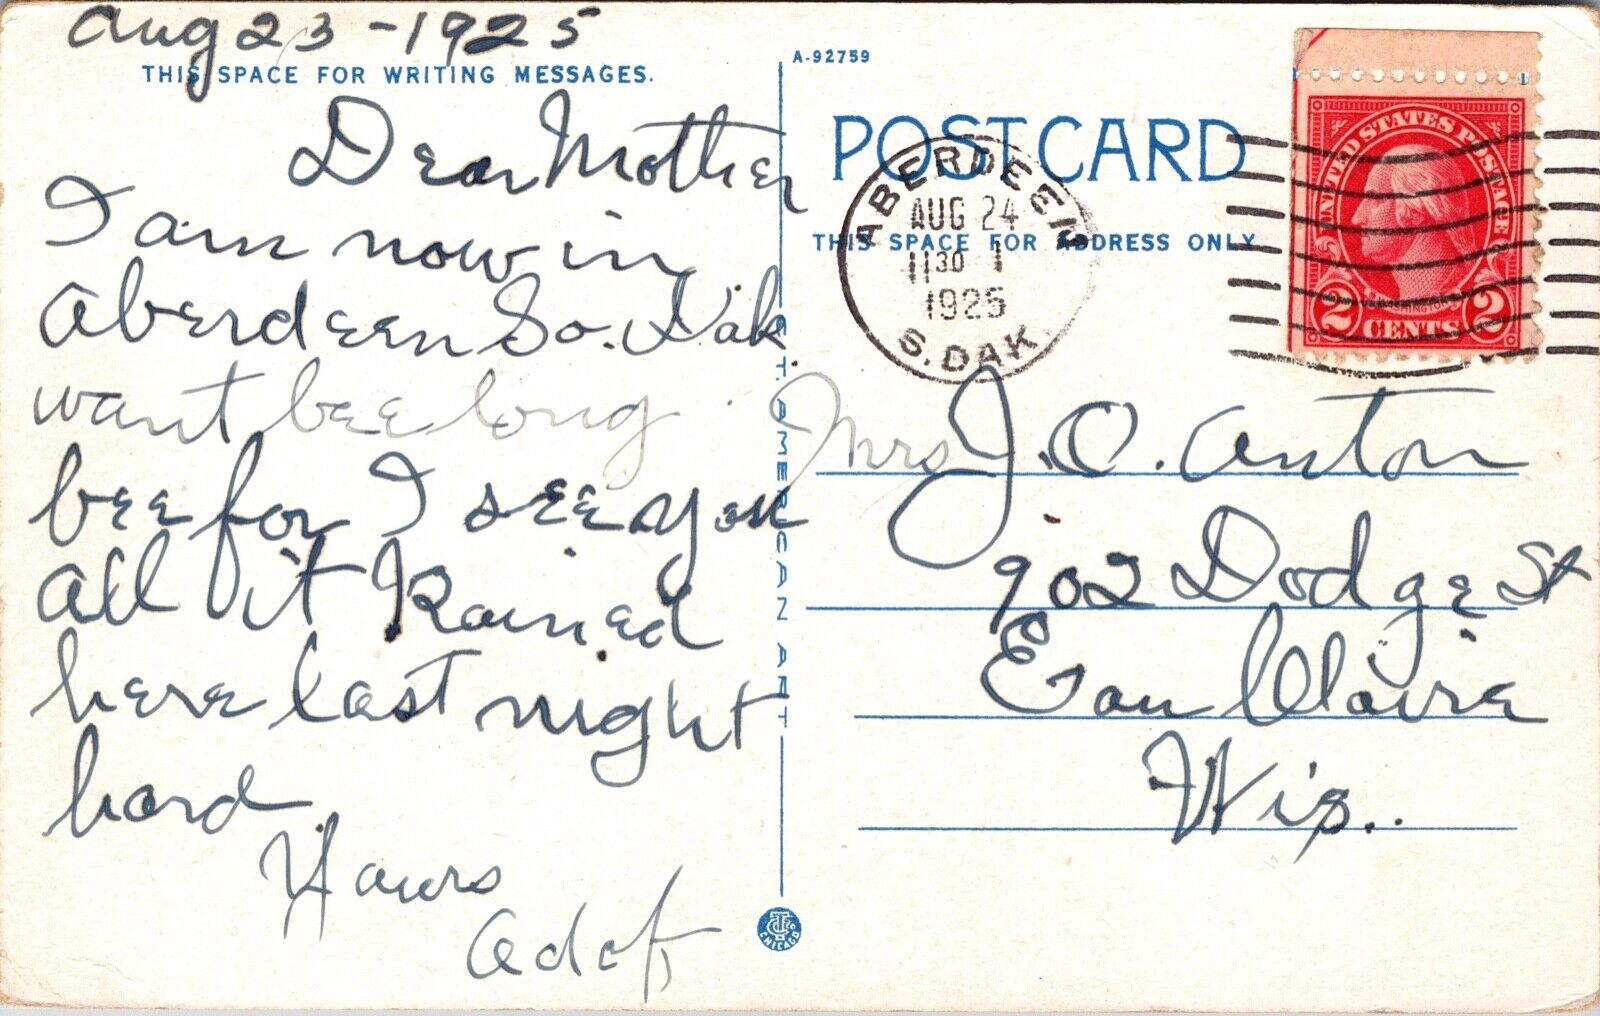 Aug 23 - 1925
THIS SPACE FOR WRITING MESSAGES.
Dear Mother
I am now in
Aberdeen So. Dak
want bee long
bee for I see you
all it Rained
here last night
hard
Yours
C.T. AMERICAN ART
A-92759
POST CARD
THIS SPACE FOR ADDRESS ONLY
ABERDEEN
AUG 24
11 30
1925
S. DAK.
UNITED STATES POSTAGE
WASHINGTON
2 CENTS 2
Mrs J. O. Anton
902 Dodge St
Eau Claire
Wis..
CHICAGO